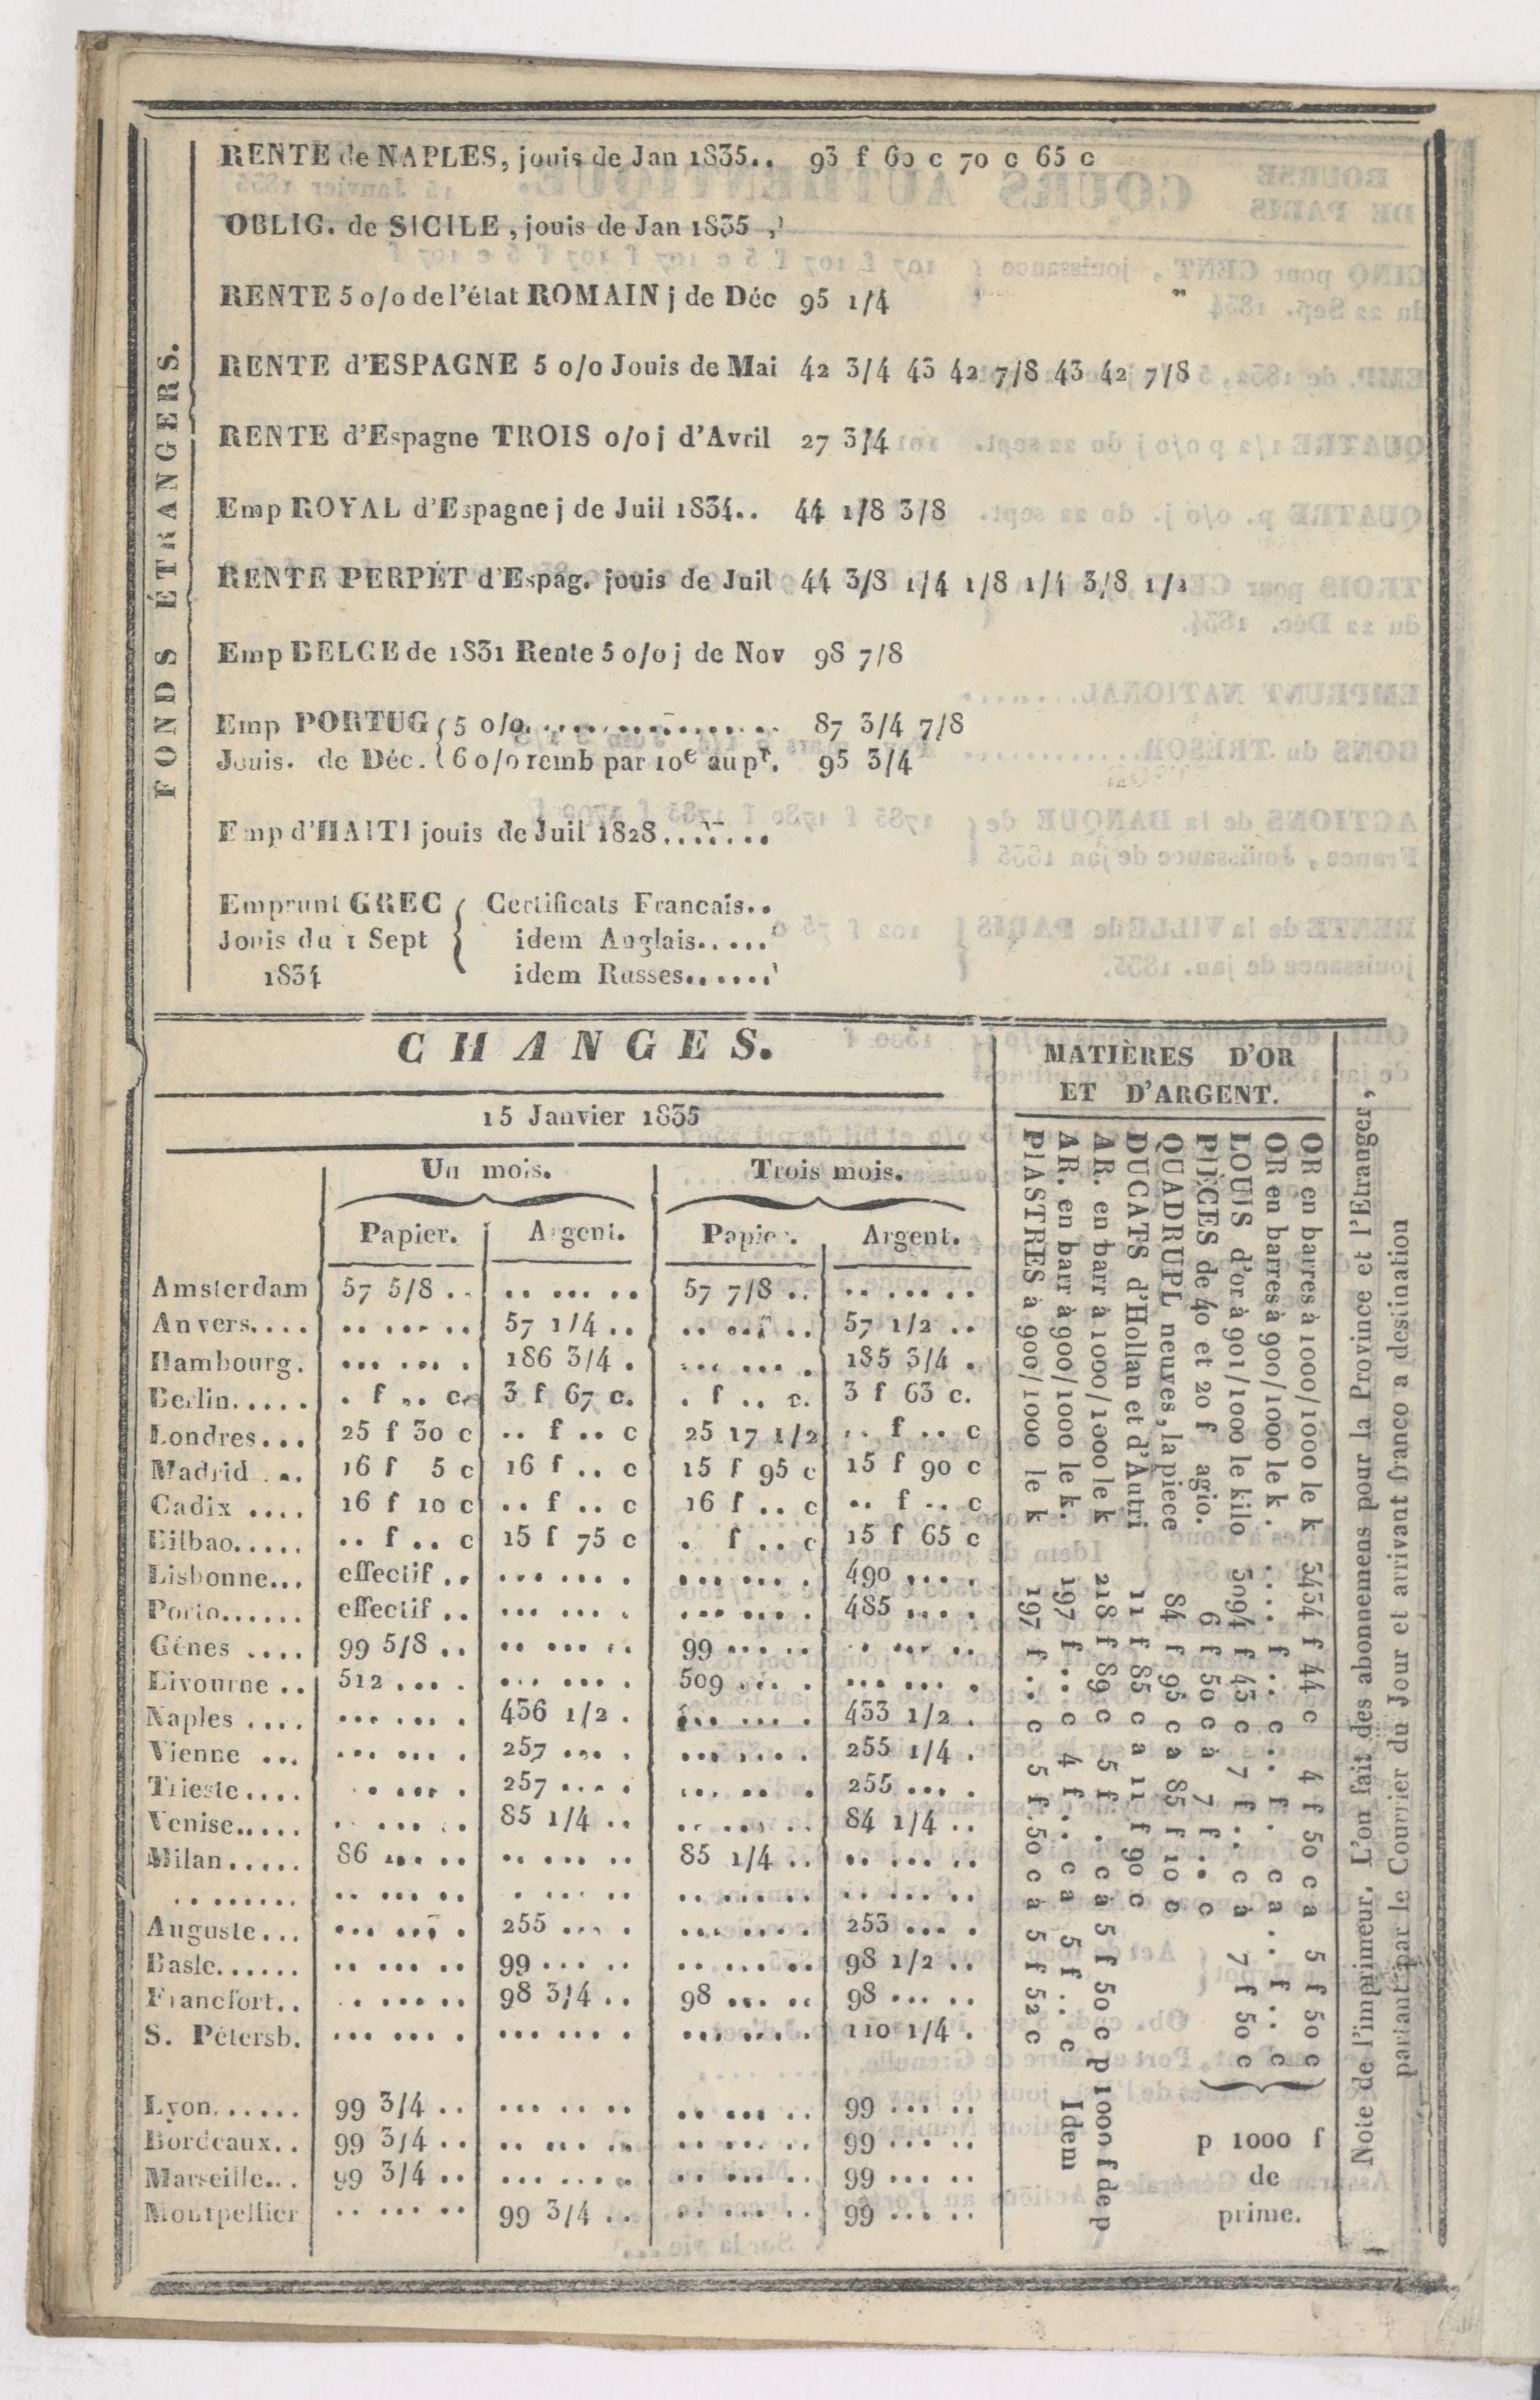 FONDS ÉTRANGERS.
RENTE de NAPLES, jouis de Jan 1835.. 93 f 60 c 70 c 65 c
OBLIG. de SICILE, jouis de Jan 1835
RENTE 5 o/o de l'état ROMAIN j de Déc 95 1/4
RENTE d'ESPAGNE 5 o/o Jouis de Mai 42 3/4 43 42 7/8 43 42 7/8
RENTE d'Espagne TROIS o/o j d'Avril 27 3/4
Emp ROYAL d'Espagne j de Juil 1834.. 44 1/8 3/8
RENTE PERPÉT d'Espag. jouis de Juil 44 3/8 1/4 1/8 1/4 3/8 1/2
Emp BELGE de 1831 Rente 5 o/o j de Nov 98 7/8
Emp PORTUG { 5 o/o................ 87 3/4 7/8
Jouis. de Déc. { 6 o/o remb par 10e au pr. 95 3/4
Emp d'HAITI jouis de Juil 1828.......
Emprunt GREC { Certificats Francais..
Jouis du 1 Sept { idem Anglais.....
1834 idem Russes......
CHANGES.
15 Janvier 1835
Un mois. Trois mois.
Papier. Argent. Papier. Argent.
Amsterdam 57 5/8 .. .. ... .. 57 7/8 .. .. ... ..
Anvers.... .. ... .. 57 1/4 .. .. ... .. 57 1/2 ..
Hambourg. ... ... . 186 3/4 . ... ... . 185 3/4 .
Berlin..... . f .. c. 3 f 67 c. . f .. c. 3 f 63 c.
Londres... 25 f 30 c .. f .. c 25 17 1/2 .. f .. c
Madrid ... 16 f 5 c 16 f .. c 15 f 95 c 15 f 90 c
Cadix .... 16 f 10 c .. f .. c 16 f .. c .. f .. c
Bilbao..... .. f .. c 15 f 75 c . f .. c 15 f 65 c
Lisbonne... effectif .. ... ... . ... ... . 490 ... .
Porto...... effectif .. ... ... . ... ... . 485 ... .
Gênes .... 99 5/8 .. .. ... .. 99 ... .. .. ... ..
Livourne .. 512 ... . ... ... . 509 ... . ... ... .
Naples .... ... ... . 436 1/2 . ... ... . 433 1/2 .
Vienne ... ... ... . 257 ... . ... ... . 255 1/4 .
Trieste.... . ... . 257 ... . ... ... . 255 ... .
Venise..... . ... .. 85 1/4 .. .. ... .. 84 1/4 ..
Milan..... 86 ... .. .. ... .. 85 1/4 .. .. ... ..
........ .. ... .. . ... .. .. ... .. .. ... ..
Auguste... ... ... . 255 ... . ... ... . 253 ... .
Basle...... .. ... .. 99 ... .. .. ... .. 98 1/2 ..
Francfort.. . ... .. 98 3/4 .. 98 ... .. 98 ... ..
S. Pétersb. ... ... . ... ... . ... ... . 110 1/4 .
Lyon...... 99 3/4 .. ... .. .. .. ... .. 99 ... ..
Bordeaux.. 99 3/4 .. .. ... .. .. ... .. 99 ... ..
Marseille... 99 3/4 .. ... ... . .. ... .. 99 ... ..
Montpellier .. ... .. 99 3/4 .. .. ... .. 99 ... ..
MATIÈRES D'OR
ET D'ARGENT.
OR en barres à 1000/1000 le k 3434 f 44 c 4 f 50 c a 5 f 50 c
OR en barres à 900/1000 le k. .... f .. c .. f . c a .. f .. c
LOUIS d'or à 901/1000 le kilo 3094 f 43 c 7 f .. c à 7 f 50 c
PIÈCES de 40 et 20 f agio. 6 f 50 c à 7 f .. c
p 1000 f
de
prime.
QUADRUPL neuves, la piece 84 f 95 c a 85 f 10 c
DUCATS d'Hollan et d'Autri 11 f 85 c a 11 f 90 c
AR. en barr à 1000/1000 le k 218 f 89 c 5 f . c à 5 f 50 c p 1000 f de p
AR. en barr à 900/1000 le k. 197 f .. c 4 f .. c a 5 f .. c Idem
PIASTRES à 900/1000 le k 197 f .. c 5 f. 50 c à 5 f 52 c
Note de l'imprimeur. L'on fait des abonnemens pour la Province et l'Etranger,
partant par le Courrier du Jour et arrivant franco a destination